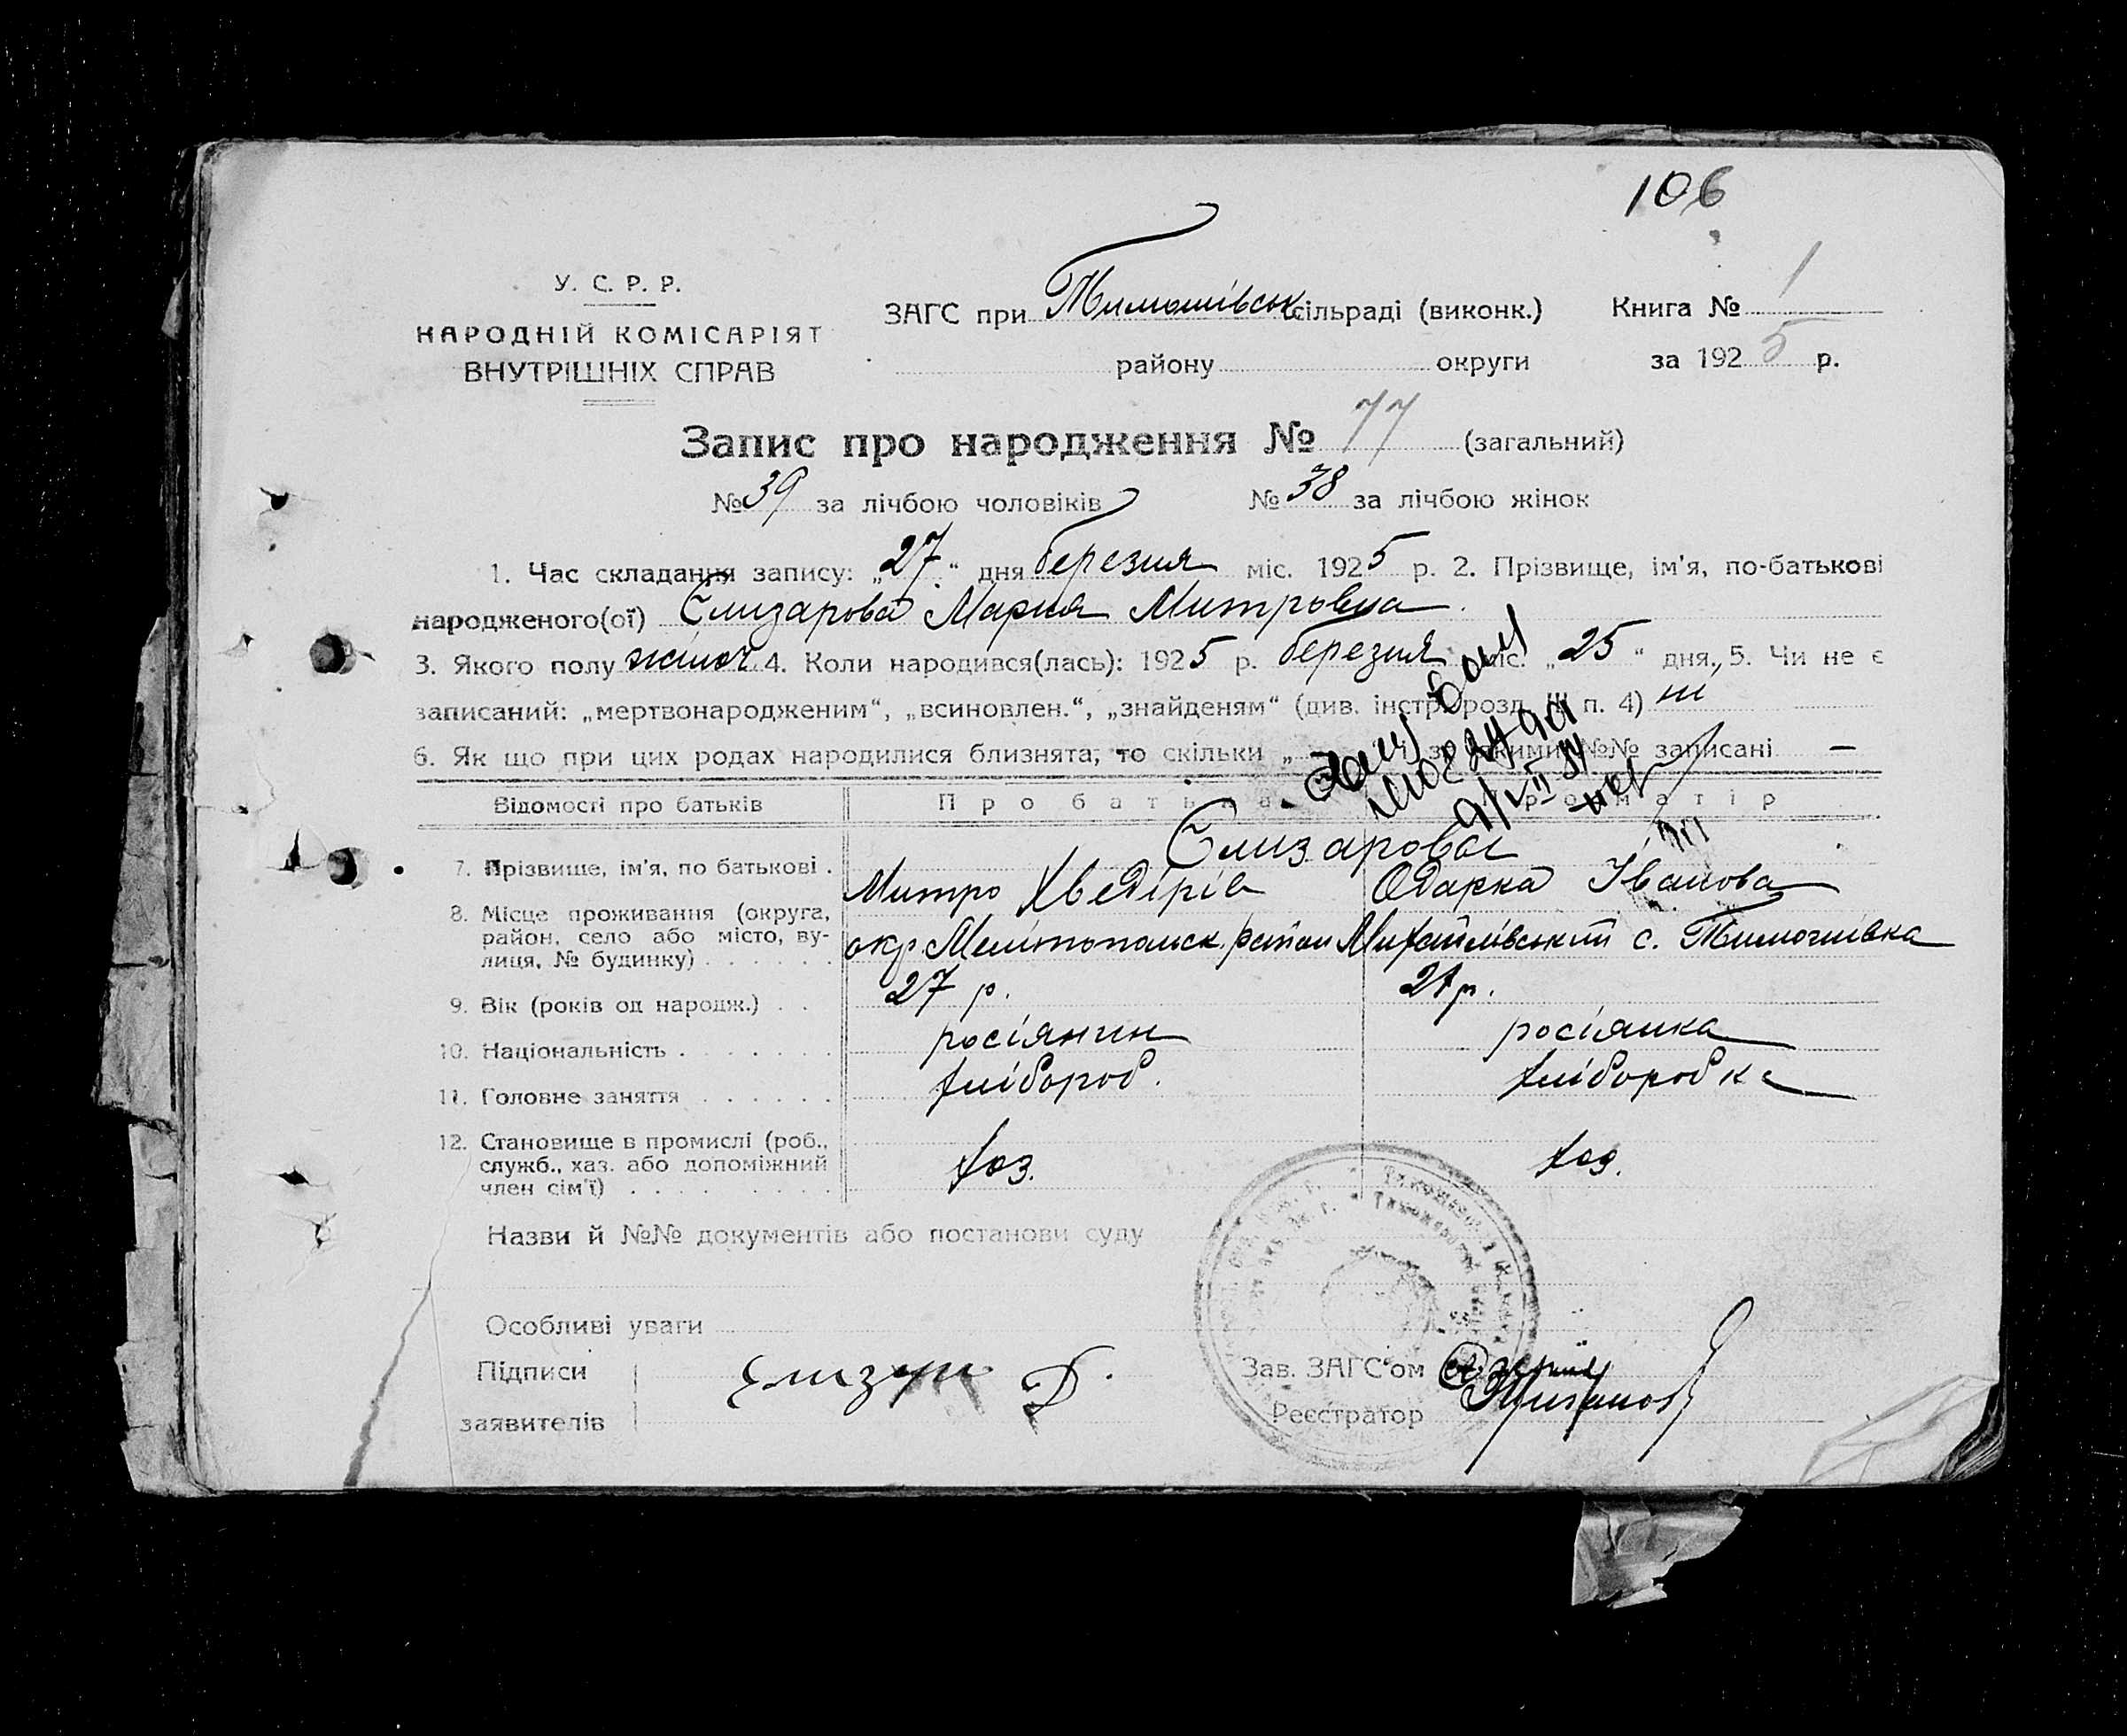 106
У. С. Р. Р.
НАРОДНІЙ КОМІСАРІЯТ
ВНУТРІШНІХ СПРАВ
ЗАГС при Тимошівськ сільраді (виконк.) Книга № 1
району округи за 1925 р.
Запис про народження № 77 (загальний)
№ 39 за лічбою чоловіків № 38 за лічбою жінок
1. Час складання запису: „27“ дня березня міс. 1925 р. 2. Прізвище, ім'я, по-батькові
народженого(ої) Єлизарова Мария Митровна
3. Якого полу жіноч 4. Коли народився(лась): 1925 р. березня міс. „25“ дня, 5. Чи не є
записаний: „мертвонародженим“, „всиновлен.“, „знайденям“ (див. інстр. розд. п. 4) ні
6. Як що при цих родах народилися близнята, то скільки „ з якими №№ записані —
Відомості про батьків Про батька Про матір
Єлизарова
7. Прізвище, ім'я, по батькові . Митро Хведірів Одарка Іванова
8. Місце проживання (округа,
район, село або місто, ву-
лиця, № будинку) . . . . . . окр. Мелітопольск. район Михайлівський с. Тимошівка
9. Вік (років од народж.) . . 27 р. 21 р.
10. Національність . . . . . . . росіянин росіянка
11. Головне заняття . . . . . . хлібороб. хліборобка
12. Становище в промислі (роб.,
служб., хаз. або допоміжний
член сім'ї) . . . . . . . . . хоз. хоз.
Назви й №№ документів або постанови суду
Особливі уваги
Підписи
заявителів
Єлизар Д.
Зав. ЗАГС'ом
Реєстратор